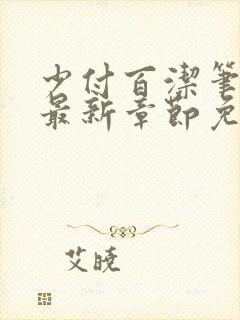 少付百潔筆
最新章節免
艾曉